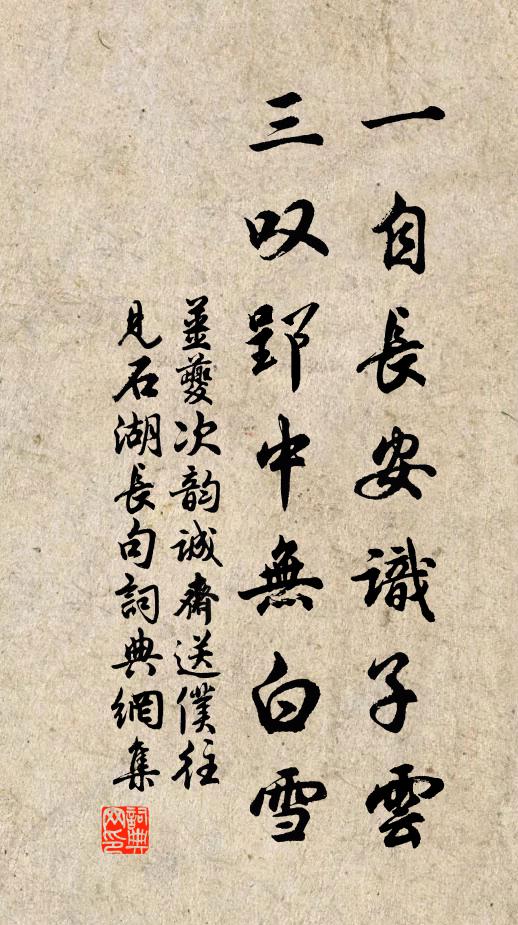 一自長安識子雲
三叹郢中無白雪
姜夔次韵誠齋送僕往
見石湖長句詞典網集
詞典网印